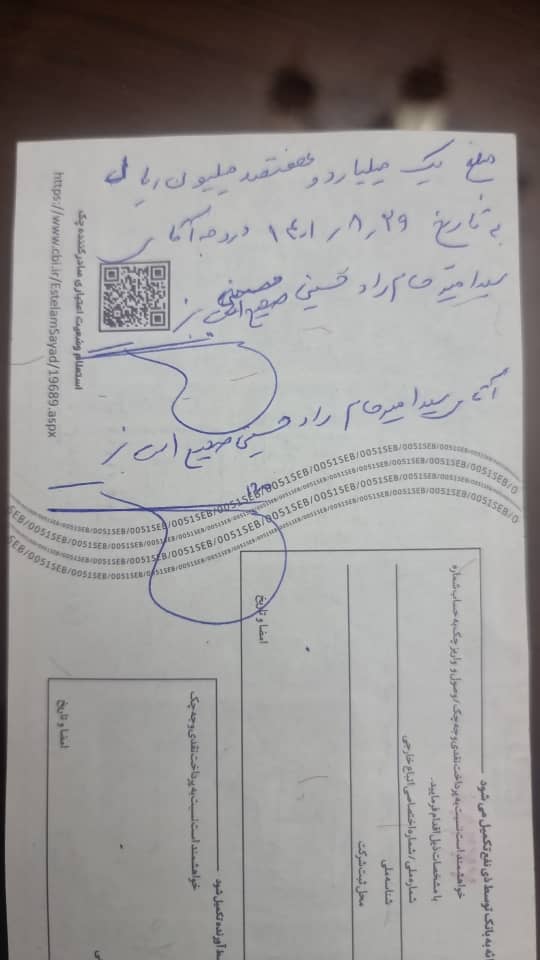 مبلغ یک میلیارد و هفتصد میلیون ریال
به تاریخ ۱۴۰۱/۸/۲۹ در وجه آقای
سید امیر حسام راد حسینی
صحیح است
آقای سید امیر حسام راد حسینی صحیح است
استعلام وضعیت اعتباری صادرکننده چک
https://www.cbi.ir/EstelamSayad/19689.aspx
0051SEB/0051SEB/0051SEB/0051SEB/0051SEB/0051SEB/0051SEB/0051SEB
انه به بانک توسط ذی نفع تکمیل می شود
خواهشمند است نسبت به پرداخت نقدی وجه چک / وصول و واریز چک به حساب شماره
با مشخصات ذیل اقدام فرمایید.
شماره ملی / شماره اختصاصی اتباع خارجی
شناسه ملی
محل ثبت شرکت
امضا و تاریخ
ط آورنده تکمیل شود
خواهشمند است نسبت به پرداخت نقدی وجه چک
امضا و تاریخ